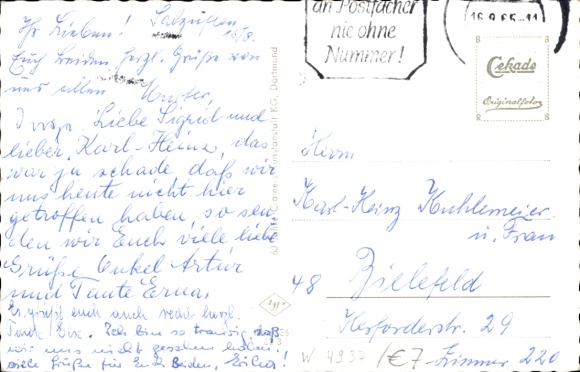 Ihr Lieben! Salzuflen, 15/8.
Euch beiden herzl. Grüße von
uns allen Mutter.
Liebe Sigrid und
lieber Karl-Heinz, das
war ja schade, daß wir
uns heute nicht hier
getroffen haben, so sen-
den wir Euch viele liebe
Grüße Onkel Artur
und Tante Erna.
Es grüßt euch auch recht herzl.
Tante Ich bin so traurig, daß
wir uns nicht gesehen haben!
viele Grüße für Euch Beiden,
Cramers Kunstanstalt KG, Dortmund
an Postfächer
nie ohne
Nummer!
16.9.65-11
Cekade
Originalfoto
Herrn
Karl-Heinz Kuhlemeier
u. Frau
48 Bielefeld
Herforderstr. 29
W 4937 (€7 Zimmer 220